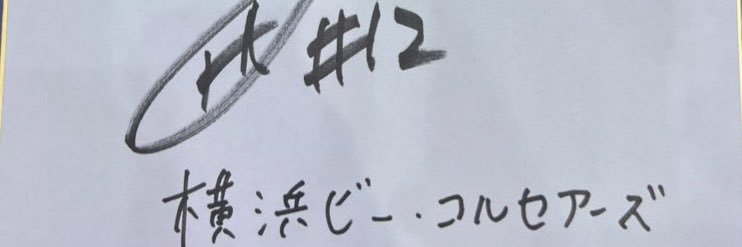 #12
横浜ビー・コルセアーズ